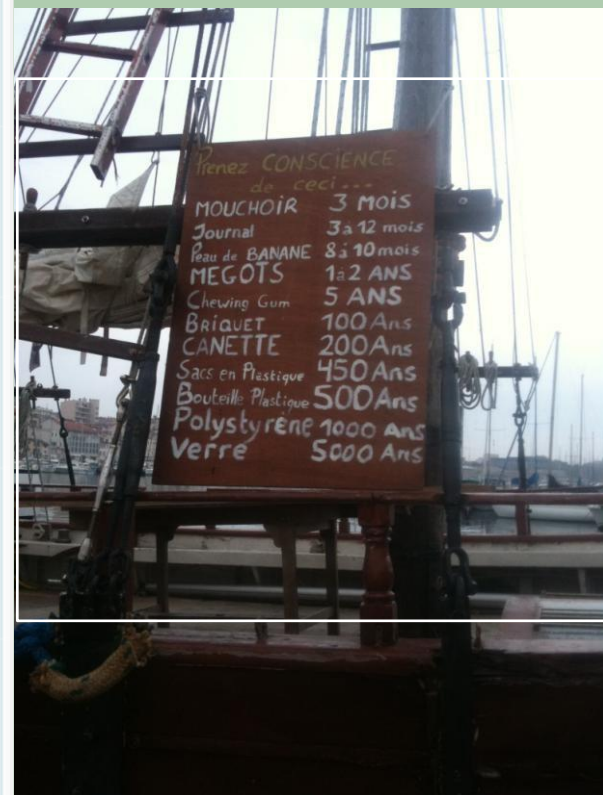 Prenez CONSCIENCE
de ceci...
MOUCHOIR 3 MOIS
Journal 3 à 12 mois
Peau de BANANE 8 à 10 mois
MEGOTS 1 à 2 ANS
Chewing Gum 5 ANS
BRIQUET 100 Ans
CANETTE 200 Ans
Sacs en Plastique 450 Ans
Bouteille Plastique 500 Ans
Polystyrène 1000 Ans
Verre 5000 Ans